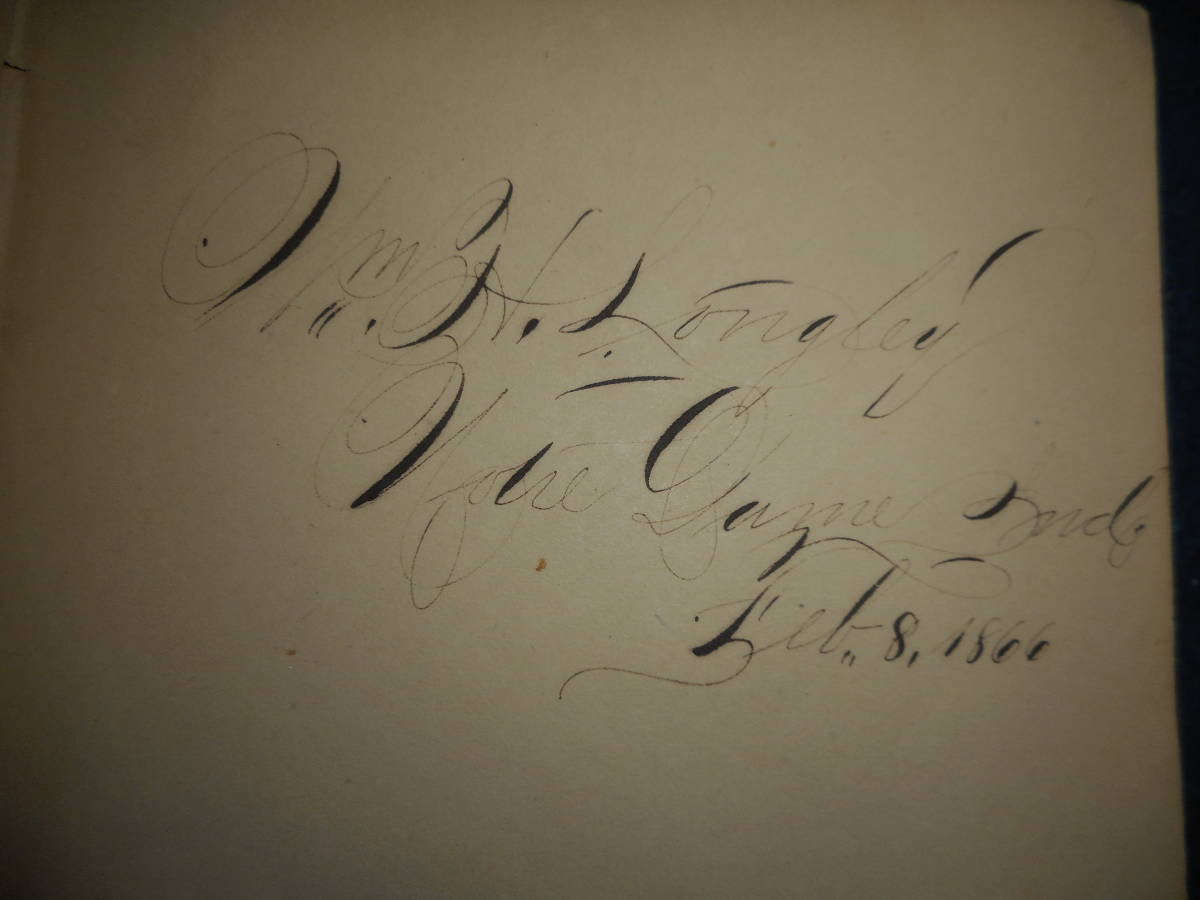 Wm. H. Longley
Notre Dame Ind.
Feb. 8, 1866